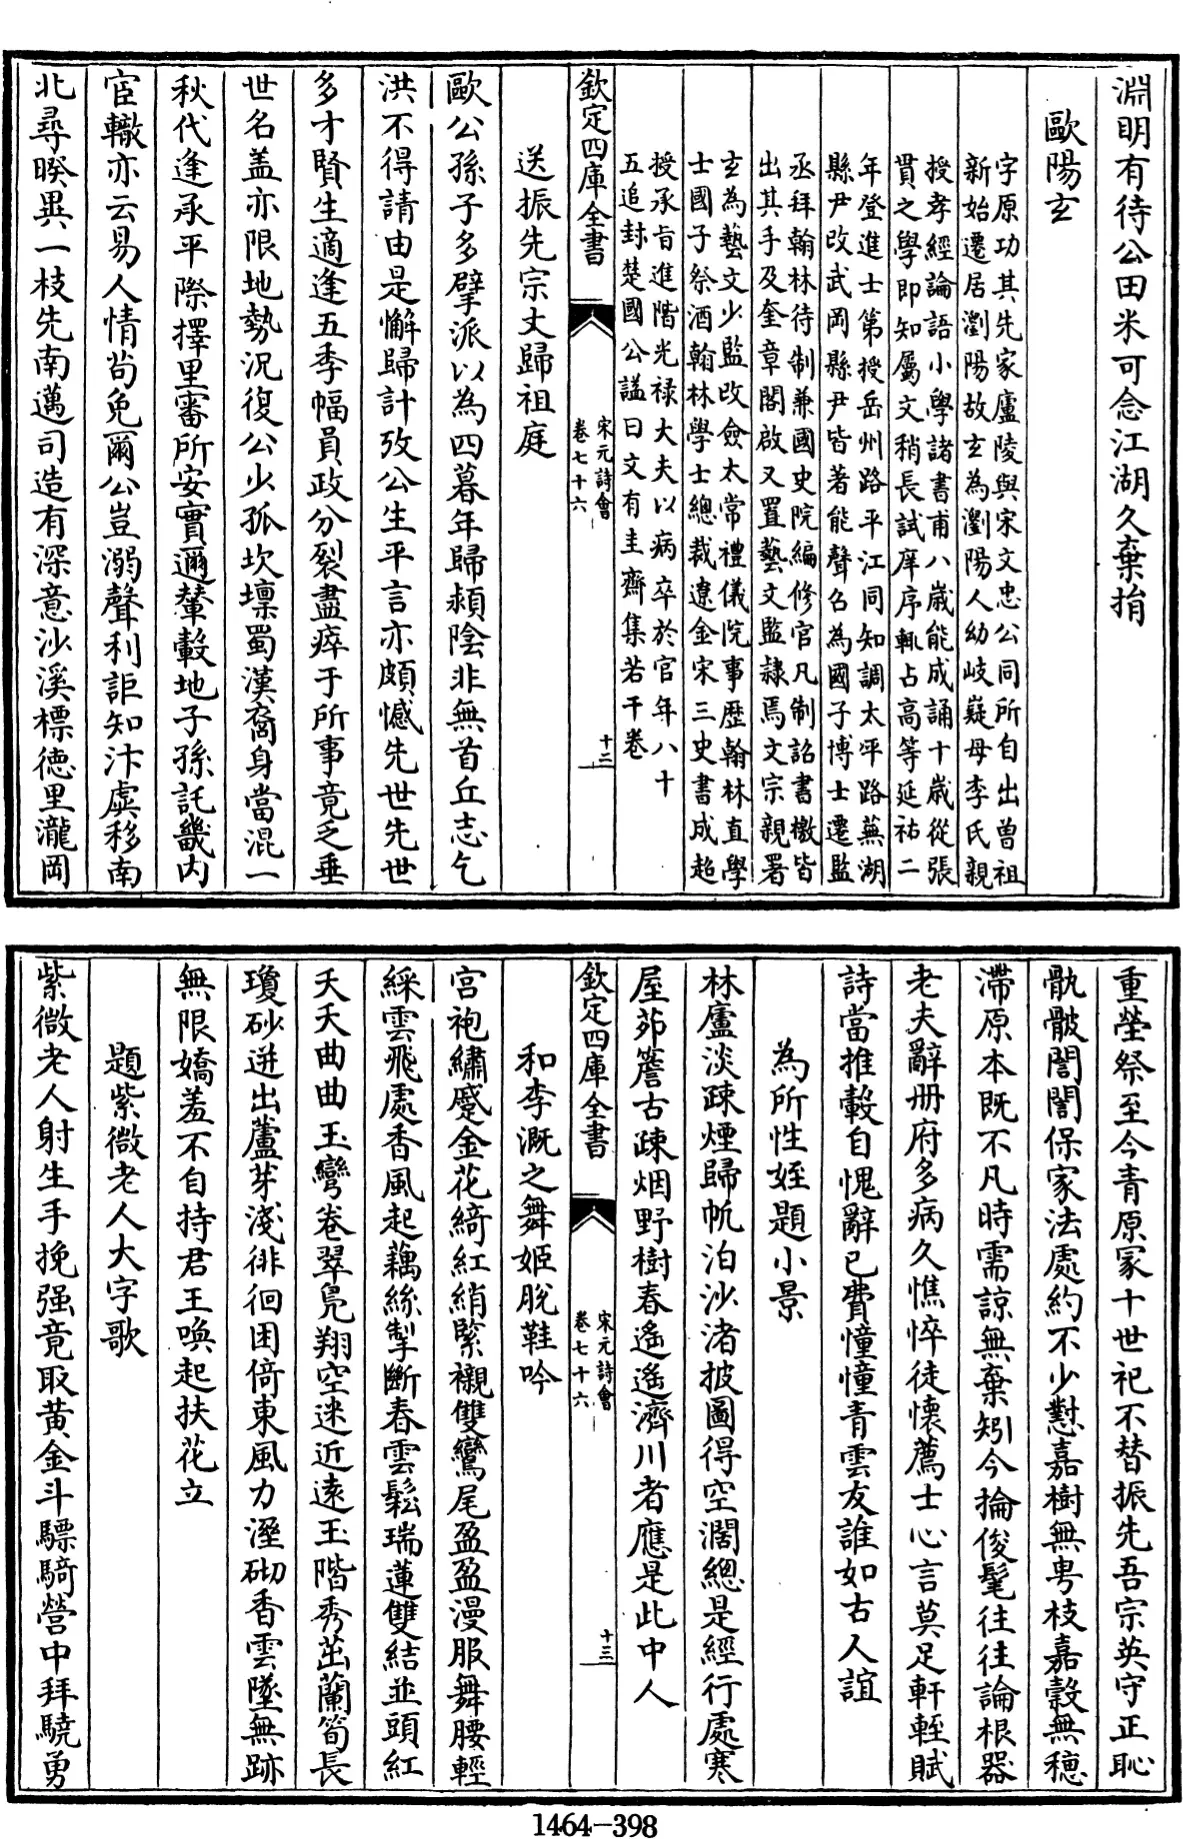 淵明有待公田米可念江湖久棄捐
歐陽玄
字原功其先家廬陵與宋文忠公同所自出曽祖
新始遷居瀏陽故玄為瀏陽人幼岐嶷母李氏親
授孝經論語小學諸書甫八歳能成誦十歳從張
貫之學即知屬文稍長試庠序輒占高等延祐二
年登進士第授岳州路平江同知調太平路蕪湖
縣尹改武岡縣尹皆著能聲召為國子博士遷監
丞拜翰林待制兼國史院編修官凡制詔書檄皆
出其手及奎章閣啟又置藝文監隷焉文宗親署
玄為藝文少監改僉太常禮儀院事歴翰林直學
士國子祭酒翰林學士總裁遼金宋三史書成超
授承旨進階光禄大夫以病卒於官年八十
五追封楚國公諡曰文有圭齋集若干卷
送振先宗丈歸祖庭
歐公孫子多孽派以為四暮年歸潁陰非無首丘志乞
洪不得請由是懈歸計攷公生平言亦頗憾先世先世
多才賢生適逢五季幅員政分裂盡瘁于所事竟乏垂
世名盖亦限地勢況復公少孤坎壈蜀漢裔身當混一
秋代逢承平際擇里審所安實邇輦轂地子孫託畿内
宦轍亦云易人情茍免爾公豈溺聲利詎知汴虛移南
北尋暌異一枝先南邁司造有深意沙溪標徳里瀧岡
欽定四庫全書
宋元詩會
卷七十六
十三
重塋祭至今青原冡十世祀不替振先吾宗英守正恥
骫骳誾誾保家法處約不少懟嘉樹無㫄枝嘉穀無穂
滯原本既不凡時需諒無棄矧今掄俊髦往往論根器
老夫辭册府多病久憔悴徒懷薦士心言莫足軒輊賦
詩當推轂自愧辭已費憧憧青雲友誰如古人誼
為所性姪題小景
林廬淡踈煙歸帆泊沙渚披圖得空濶總是經行處寒
屋茆簷古踈烟野樹春遙遙濟川者應是此中人
欽定四庫全書
宋元詩會
卷七十六
十三
和李溉之舞姬脱鞋吟
宫袍繡蹙金花綺紅綃緊襯雙鸞尾盈盈漫服舞腰輕
綵雲飛處香風起藕絲掣斷春雲鬆瑞蓮雙結並頭紅
夭夭曲曲玉彎卷翠鳬翔空迷近逺玉階秀茁蘭筍長
瓊砂迸出蘆芽淺徘徊困倚東風力溼砌香雲墜無跡
無限嬌羞不自持君王喚起扶花立
題紫微老人大字歌
紫微老人射生手挽强竟取黄金斗驃騎營中拜驍勇
1464-398